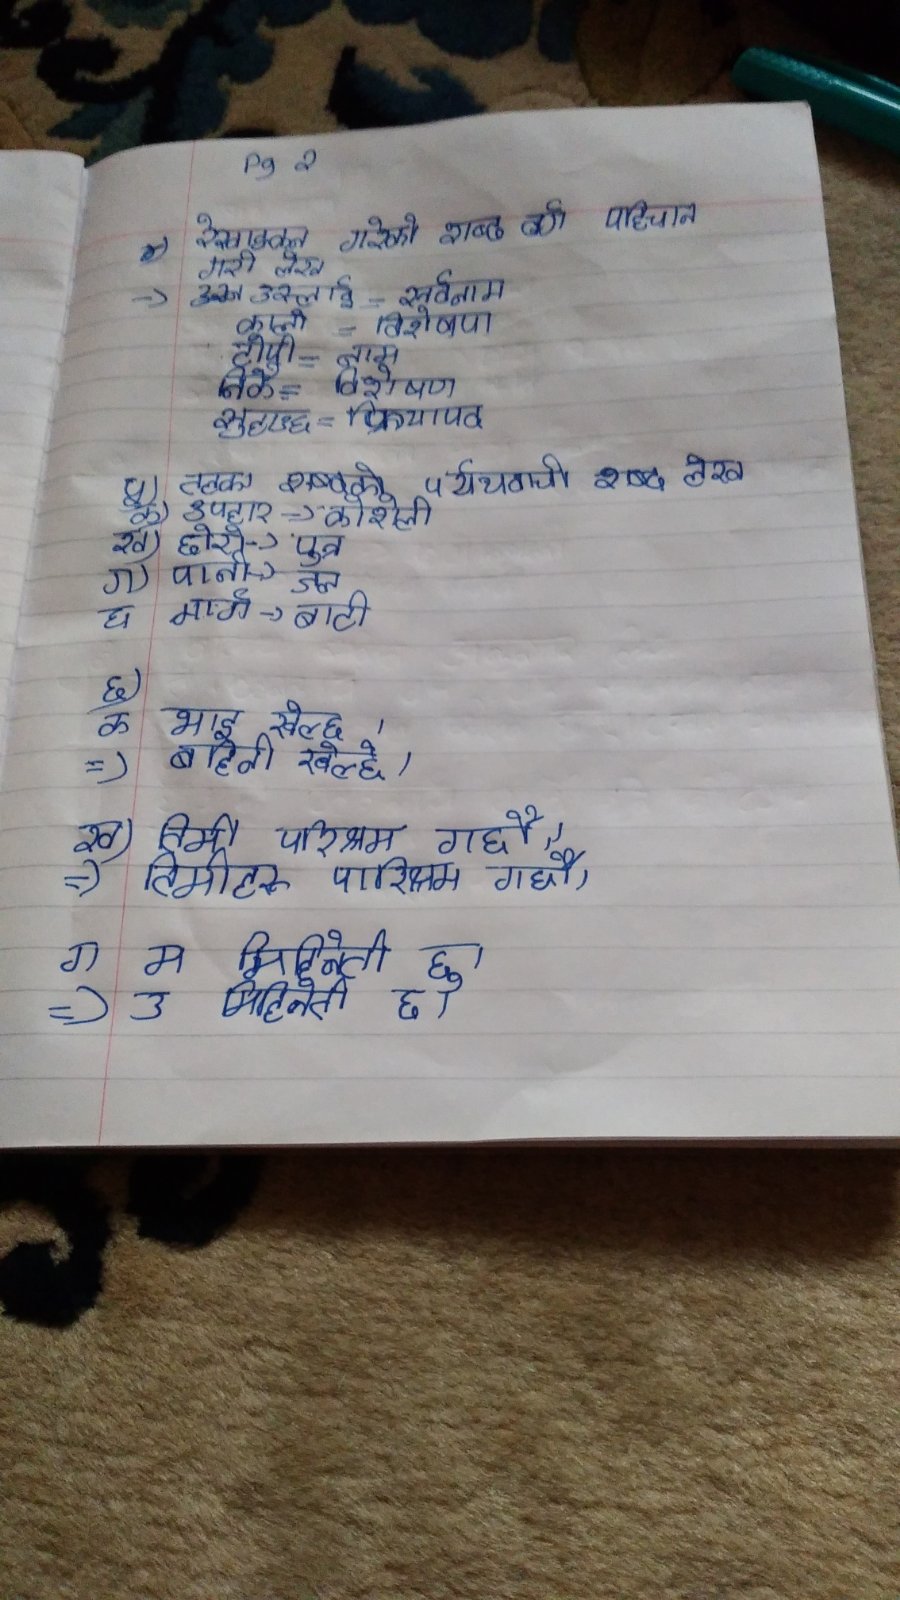 Pg 2
रेखाङ्कन गरेको शब्द वर्ग पहिचान
गरी लेख
=> उस्लाई = सर्वनाम
कालो = विशेषण
टोपी = नाम
निकै = विशेषण
सुहाउछ = क्रियापद
५) तलका शब्दको पर्यचवाची शब्द लेख
क) उपहार => कोशेली
ख) छोरो -> पुत्र
ग) पानी -> जल
घ मार्ग -> बाटो
६)
क भाइ खेल्छ ।
=> बहिनी खेल्छे ।
ख) तिमी परिश्रम गर्छौ ।
=> तिमीहरू परिश्रम गर्छौ ।
ग म मिहिनेती छु ।
=> उ मिहिनेती छ ।